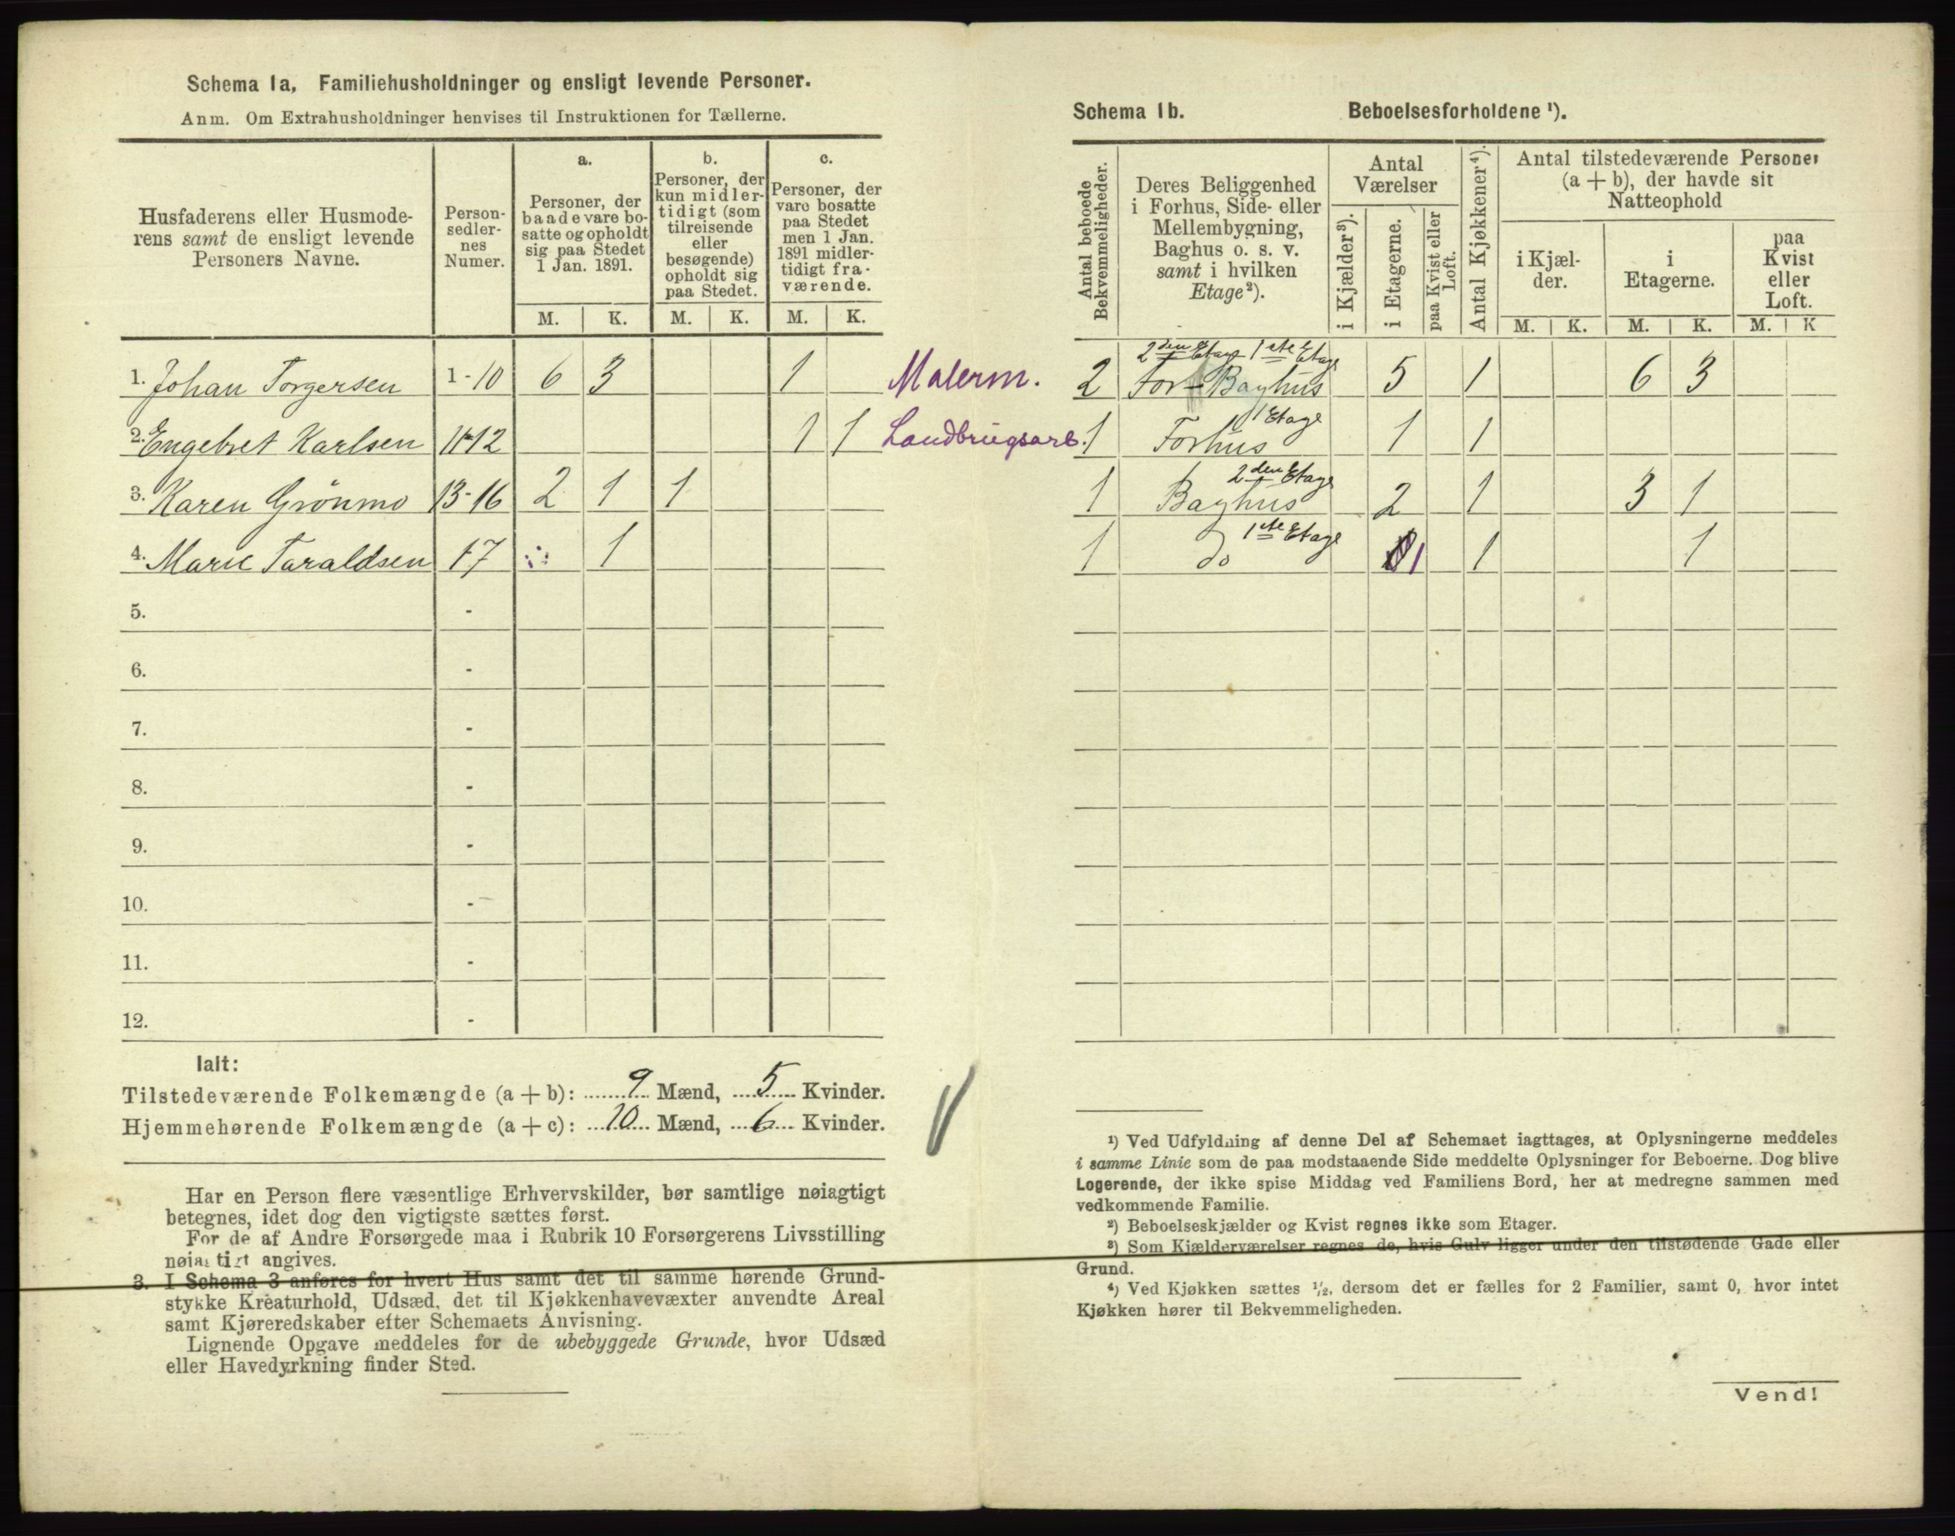 Schema 1a, Familiehusholdninger og ensligt levende Personer.
Anm. Om Extrahusholdninger henvises til Instruktionen for Tællerne.
Husfaderens eller Husmode-
rens samt de ensligt levende
Personers Navne.
Person-
sedler-
nes
Numer.
a.
Personer, der
baade vare bo-
satte og opholdt
sig paa Stedet
1 Jan. 1891.
b.
Personer, der
kun midler-
tidigt (som
tilreisende
eller
besøgende)
opholdt sig
paa Stedet.
c.
Personer, der
vare bosatte
paa Stedet
men 1 Jan.
1891 midler-
tidigt fra-
værende.
M. K. M. K. M. K.
1. Johan Torgersen 1-10 6 3 1 Malerm.
2. Engebret Karlsen 11-12 1 1 Landbrugsarb.
3. Karen Grönmo 13-16 2 1 1
4. Marie Taraldsen 17 1
5. -
6. -
7. -
8. -
9. -
10. -
11. -
12. -
Ialt:
Tilstedeværende Folkemængde (a + b): 9 Mænd, 5 Kvinder.
Hjemmehørende Folkemængde (a + c): 10 Mænd, 6 Kvinder.
Har en Person flere væsentlige Erhvervskilder, bør samtlige nøiagtigt
betegnes, idet dog den vigtigste sættes først.
For de af Andre Forsørgede maa i Rubrik 10 Forsørgerens Livsstilling
nøiagtigt angives.
3. I Schema 3 anføres for hvert Hus samt det til samme hørende Grund-
stykke Kreaturhold, Udsæd, det til Kjøkkenhavevæxter anvendte Areal
samt Kjøreredskaber efter Schemaets Anvisning.
Lignende Opgave meddeles for de ubebyggede Grunde, hvor Udsæd
eller Havedyrkning finder Sted.
Schema 1b. Beboelsesforholdene ¹).
Antal beboede
Bekvemmeligheder.
Deres Beliggenhed
i Forhus, Side- eller
Mellembygning,
Baghus o. s. v.
samt i hvilken
Etage²).
Antal
Værelser
i Kjælder³).
i Etagerne.
paa Kvist eller
Loft.
Antal Kjøkkener⁴).
Antal tilstedeværende Personer
(a + b), der havde sit
Natteophold
i Kjæl-
der.
i
Etagerne.
paa
Kvist
eller
Loft.
M. K. M. K. M. K
2den Etage 1ste Etage
2 For- Baghus 5 1 6 3
1 Etage
1 Forhus 1 1
2den Etage
1 Baghus 2 1 3 1
1ste Etage
1 do 1 1 1
¹) Ved Udfyldning af denne Del af Schemaet iagttages, at Oplysningerne meddeles
i samme Linie som de paa modstaaende Side meddelte Oplysninger for Beboerne. Dog blive
Logerende, der ikke spise Middag ved Familiens Bord, her at medregne sammen med
vedkommende Familie.
²) Beboelseskjælder og Kvist regnes ikke som Etager.
³) Som Kjælderværelser regnes de, hvis Gulv ligger under den tilstødende Gade eller
Grund.
⁴) Ved Kjøkken sættes ½, dersom det er fælles for 2 Familier, samt 0, hvor intet
Kjøkken hører til Bekvemmeligheden.
Vend!